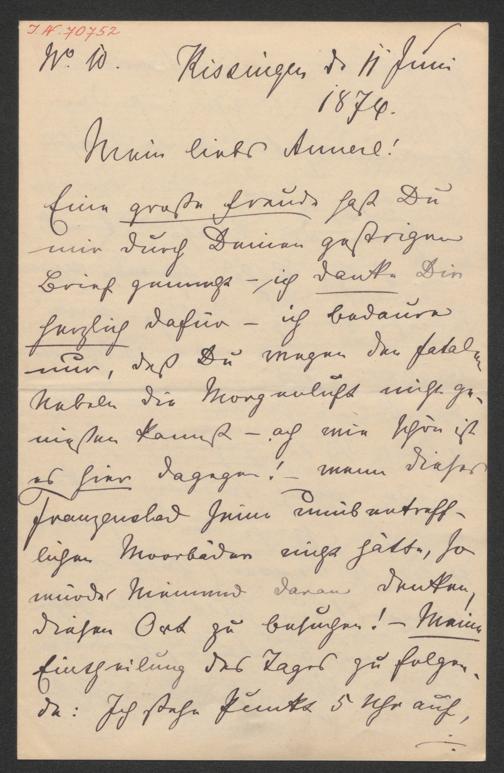 I.N. 70752
No. 10. Kissingen d. 11 Juni
1874.
Mein liebes Annerl!
Eine große Freude hast Du
mir durch Deinen gestrigen
Brief gemacht – ich danke Dir
herzlich dafür – ich bedaure
nur, daß Du wegen den fatalen
Nebeln die Morgenluft nicht ge-
nießen kannst – ach wie schön ist
es hier dagegen! – wenn dieses
Franzensbad seine unübertreff-
lichen Moorbäder nicht hätte, so
würde Niemand daran denken,
diesen Ort zu besuchen! – Meine
Eintheilung des Tages zu folgen-
de: Ich stehe Punkt 5 Uhr auf,